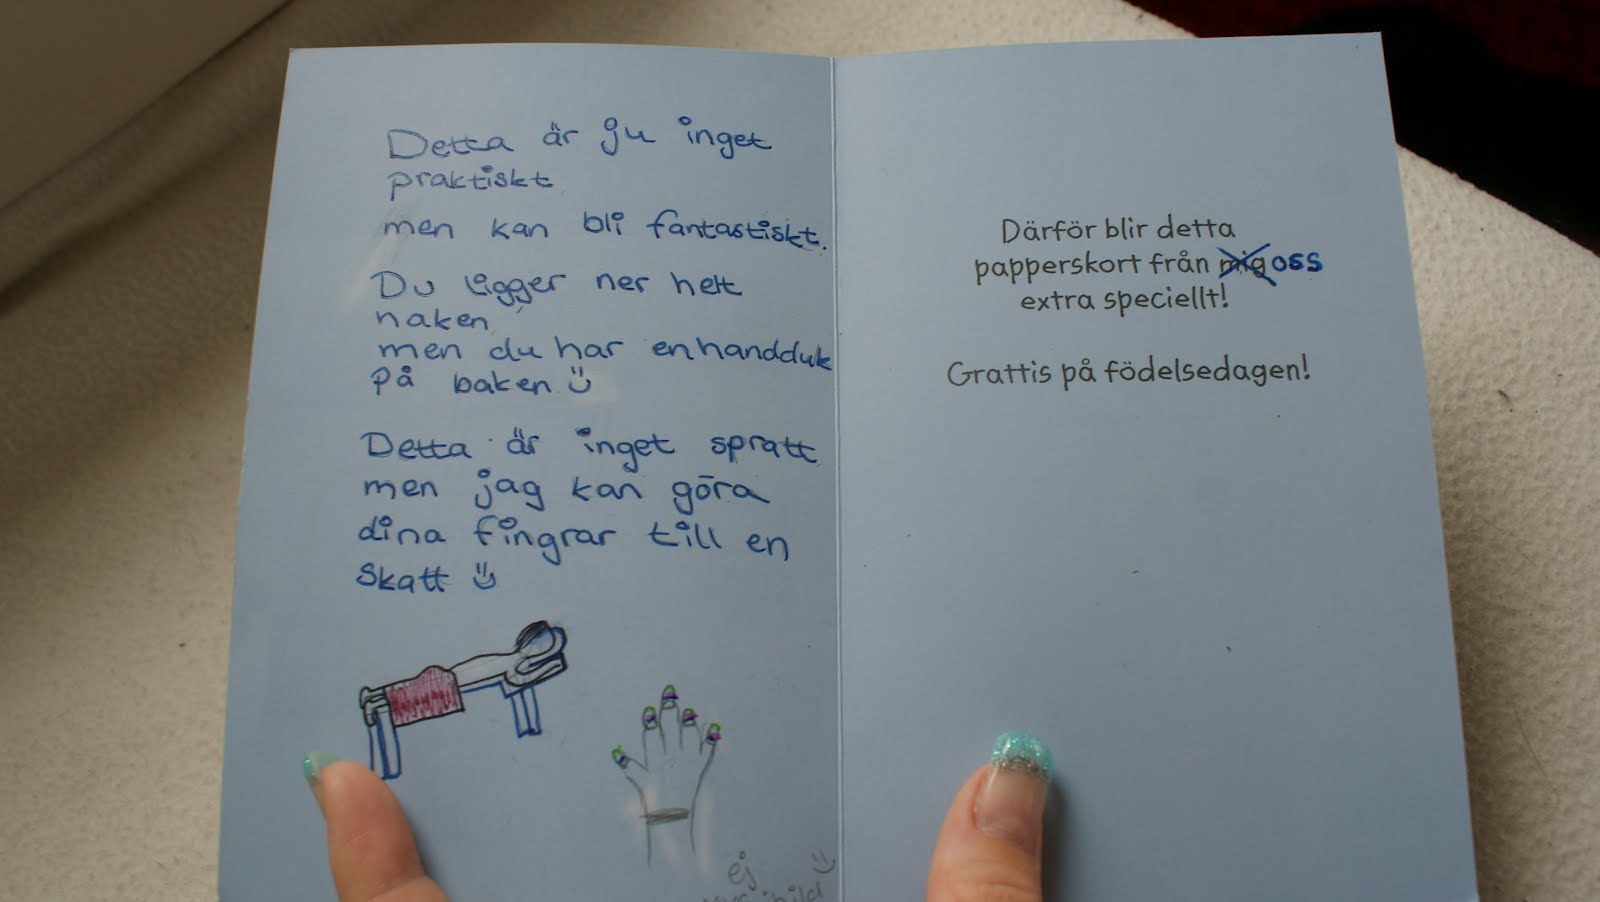 Detta är ju inget
praktiskt
men kan bli fantastiskt.
Du ligger ner helt
naken
men du har en handduk
på baken
Detta är inget spratt
men jag kan göra
dina fingrar till en
skatt
ej
bild
Därför blir detta
papperskort från mig oss
extra speciellt!
Grattis på födelsedagen!